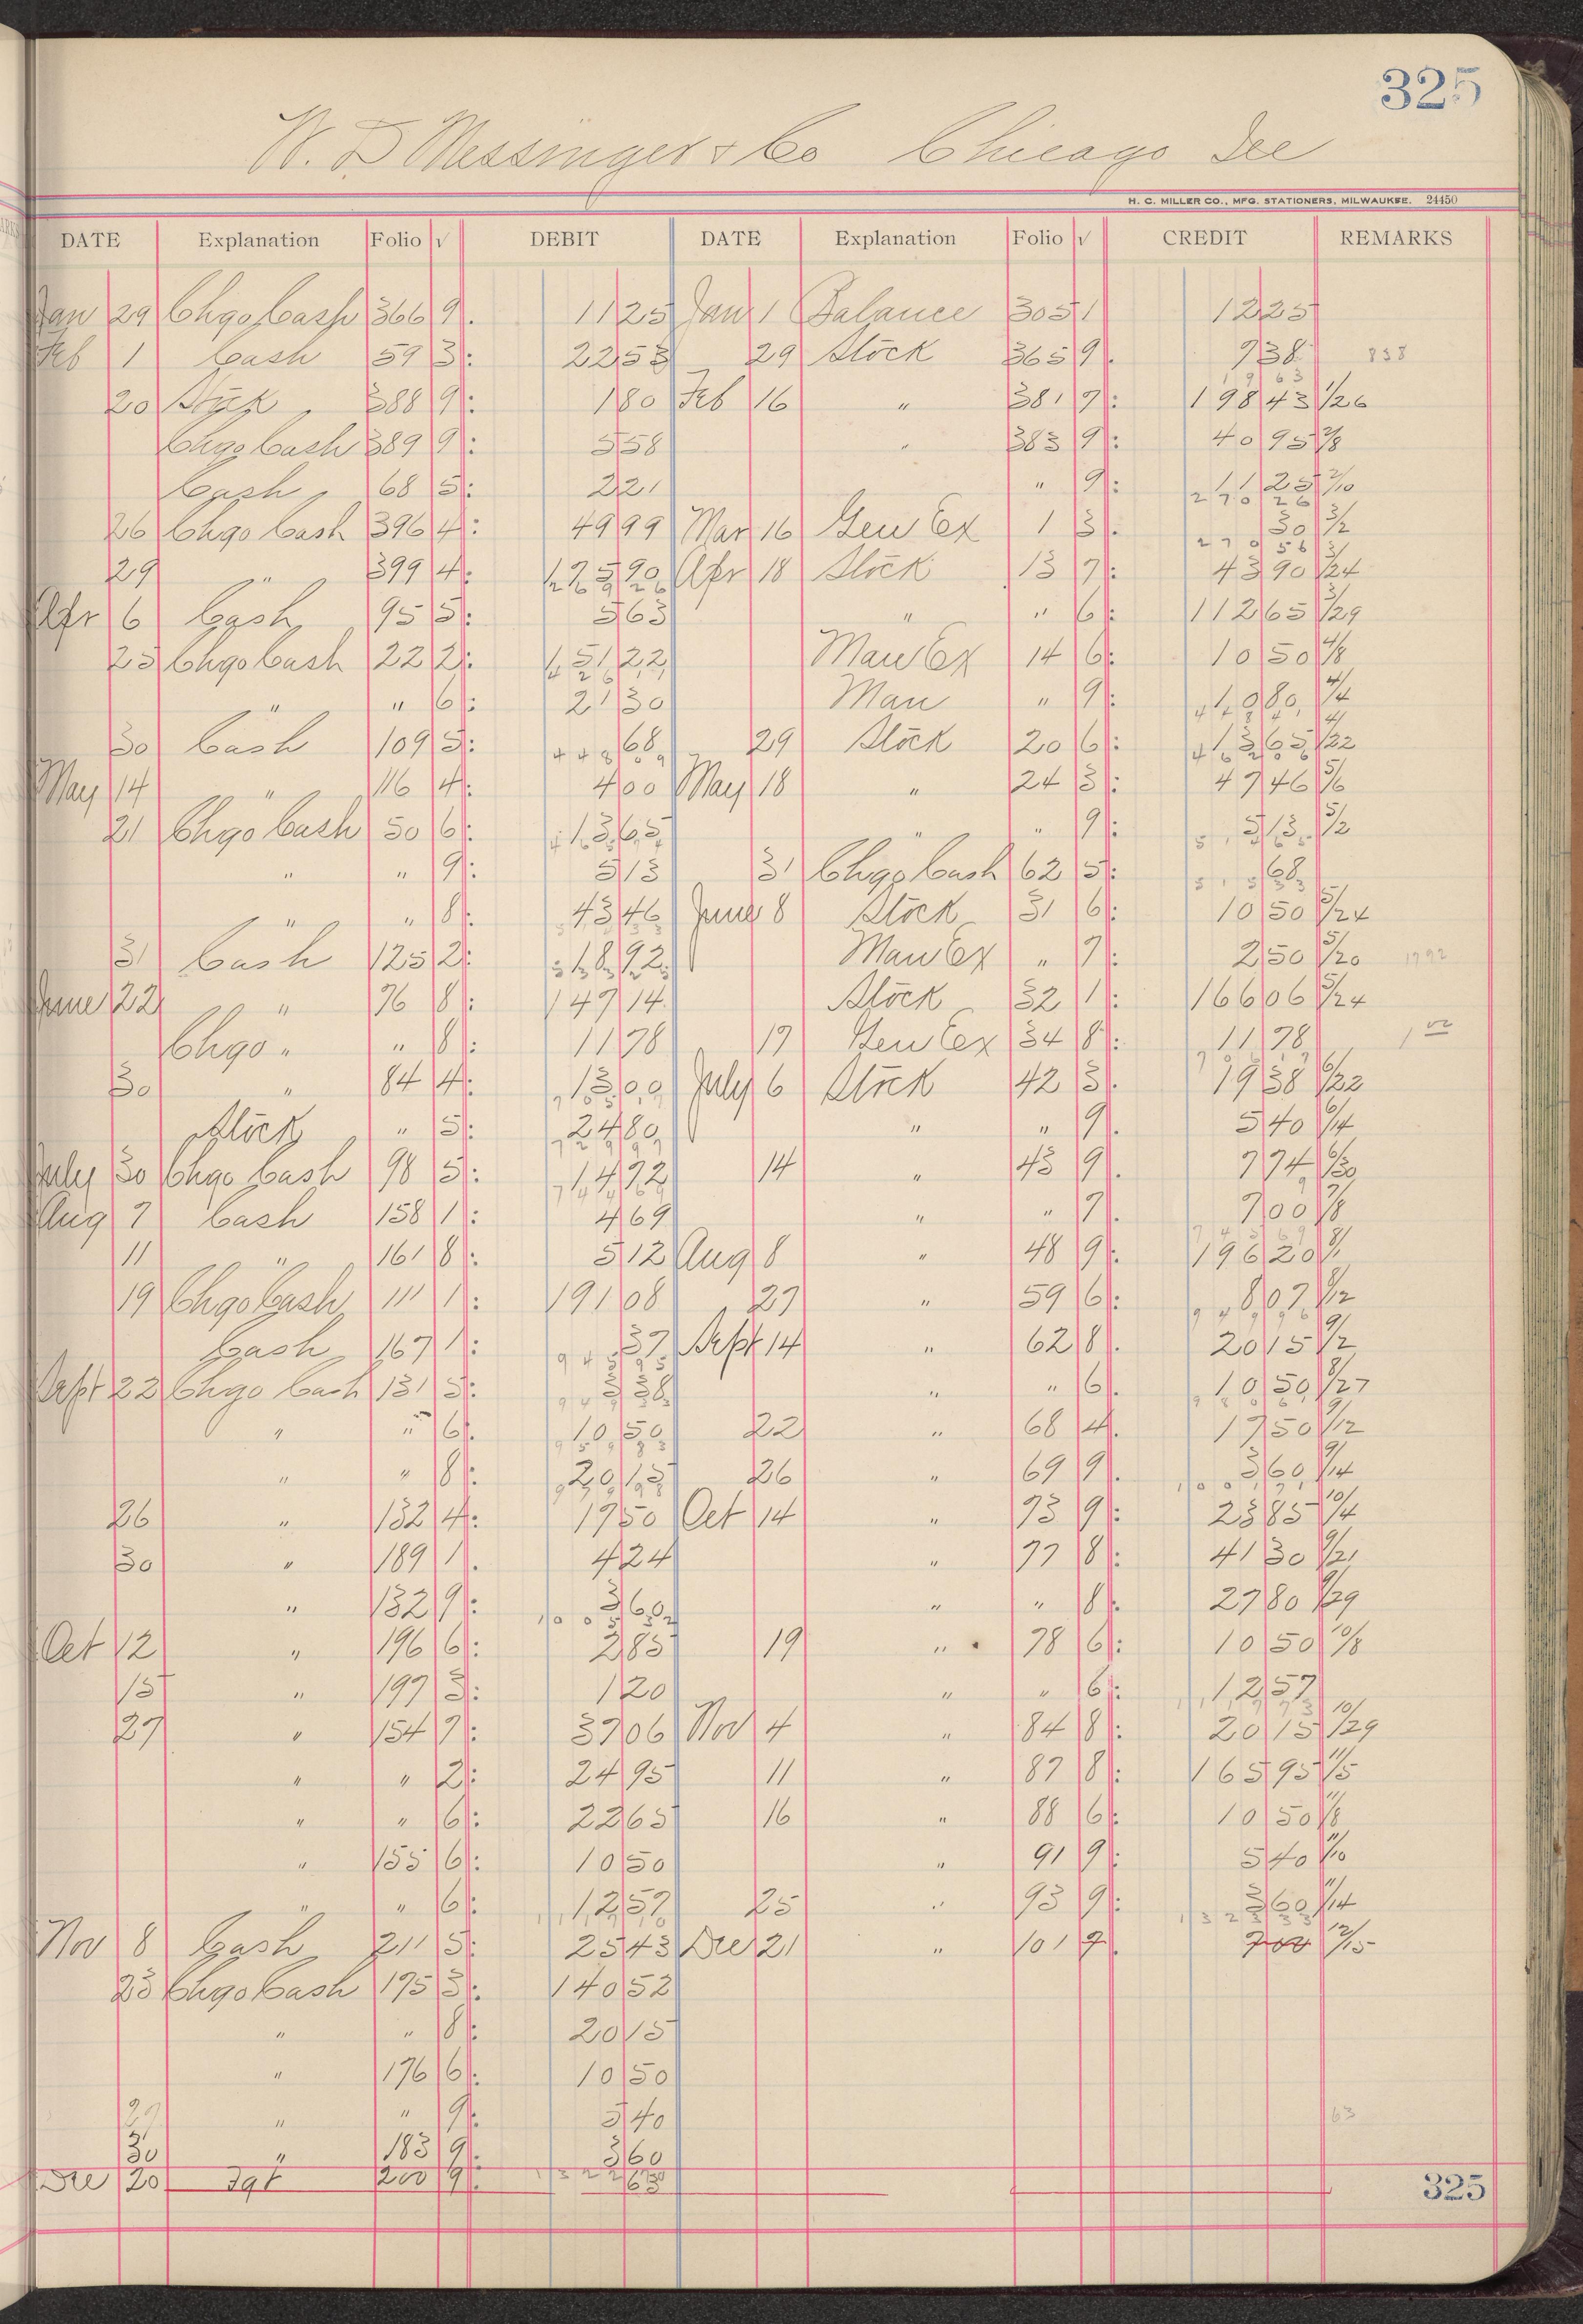 325
W. D. Messinger & Co Chicago Ill
H. C. MILLER CO., MFG. STATIONERS, MILWAUKEE. 24450
DATE Explanation Folio √ DEBIT DATE Explanation Folio √ CREDIT REMARKS
Jan 29 Chgo Cash 366 9 . 11 25 Jan 1 Balance 305 1 12 25
Feb 1 Cash 59 3 : 22 53 29 Stock 365 9 . 9 38 838
20 Stock 388 9 : 1 80 Feb 16 " 381 7 : 198 43 1/26
Chgo Cash 389 9 : 5 58 " 383 9 : 40 95 2/8
Cash 68 5 : 2 21 " 9 : 11 25 2/10
26 Chgo Cash 396 4 : 49 99 Mar 16 Gen Ex 1 3 . 30 3/2
29 " 399 4 : 175 90 Apr 18 Stock 13 7 : 43 90 3/24
Apr 6 Cash 95 5 : 5 63 " " 6 : 112 65 3/29
23 Chgo Cash 22 2 : 151 22 Man Ex 14 6 : 10 50 4/8
" " 6 : 21 30 Man " 9 : 10 80 4/4
30 Cash 109 5 : 68 29 Stock 20 6 : 13 65 4/22
May 14 " 116 4 : 4 00 May 18 " 24 3 : 47 46 5/6
21 Chgo Cash 50 6 : 13 65 " " 9 : 5 13 5/2
" " 9 : 5 13 31 Chgo Cash 62 5 : 68
" " 8 : 43 46 June 8 Stock 31 6 : 10 50 5/24
31 Cash 125 2 : 18 92 Man Ex " 7 : 2 50 5/20 1792
June 22 " 76 8 : 147 14 Stock 32 1 : 166 06 5/24
Chgo " " 8 : 11 78 17 Gen Ex 34 8 : 11 78 1 00
30 " 84 4 : 13 00 July 6 Stock 42 3 . 19 38 6/22
Stock " 5 : 24 80 " " 9 . 5 40 6/14
July 30 Chgo Cash 98 5 : 14 72 14 " 43 9 . 7 74 6/30
Aug 7 Cash 158 1 : 4 69 " " 7 . 7 00 7/8
11 " 161 8 : 5 12 Aug 8 " 48 9 : 196 20 8/1
19 Chgo Cash 111 1 : 191 08 27 " 59 6 : 8 07 8/12
Cash 167 1 : 37 Sept 14 " 62 8 . 20 15 9/2
Sept 22 Chgo Cash 131 5 : 3 38 " " 6 . 10 50 8/27
" " 6 : 10 50 22 " 68 4 . 17 50 9/12
" " 8 : 20 15 26 " 69 9 . 3 60 9/14
26 " 132 4 : 17 50 Oct 14 " 73 9 : 23 85 10/4
30 " 189 1 . 4 24 " 77 8 : 41 30 9/21
" 132 9 : 3 60 " " 8 : 27 80 9/29
Oct 12 " 196 6 : 2 85 19 " 78 6 : 10 50 10/8
15 " 197 3 : 1 20 " " 6 : 12 57
27 " 154 7 : 37 06 Nov 4 " 84 8 : 20 15 10/29
" " 2 : 24 95 11 " 87 8 : 165 95 11/5
" " 6 : 22 65 16 " 88 6 : 10 50 11/8
" 155 6 : 10 50 " 91 9 : 5 40 11/10
" " 6 : 12 57 25 " 93 9 : 3 60 11/14
Nov 8 Cash 211 5 : 25 43 Dec 21 " 101 7 . 7 00 12/15
23 Chgo Cash 175 3 : 140 52
" " 8 : 20 15
" 176 6 : 10 50
29 " " 9 : 5 40 63
30 " 183 9 : 3 60
Dec 20 200 9 : 63
325